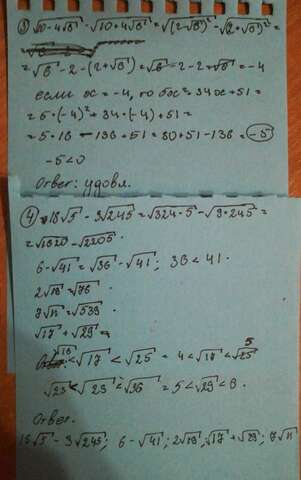 ③ √10-4√6 - √10+4√6 = √(2-√6)² - √(2+√6)² =
= √6 - 2 - (2+√6) = √6 - 2 - 2 - √6 = -4
если x = -4, то 5x² + 34x + 51 =
= 5·(-4)² + 34·(-4) + 51 =
= 5·16 - 136 + 51 = 80 + 51 - 136 = -5
-5<0
Ответ: удовл.
④ 18√5 - 3√245 = √324·5 - √9·245 =
= √1620 - √2205.
6-√41 = √36 - √41; 36 < 41.
2√19 = √76
7√11 = √539
√17 + √29 =
√16 < √17 < √25 = 4 < √17 < 5
√25 < √29 < √36 = 5 < √29 < 6.
Ответ.
18√5 - 3√245; 6-√41; 2√19; √17 + √29; 7√11